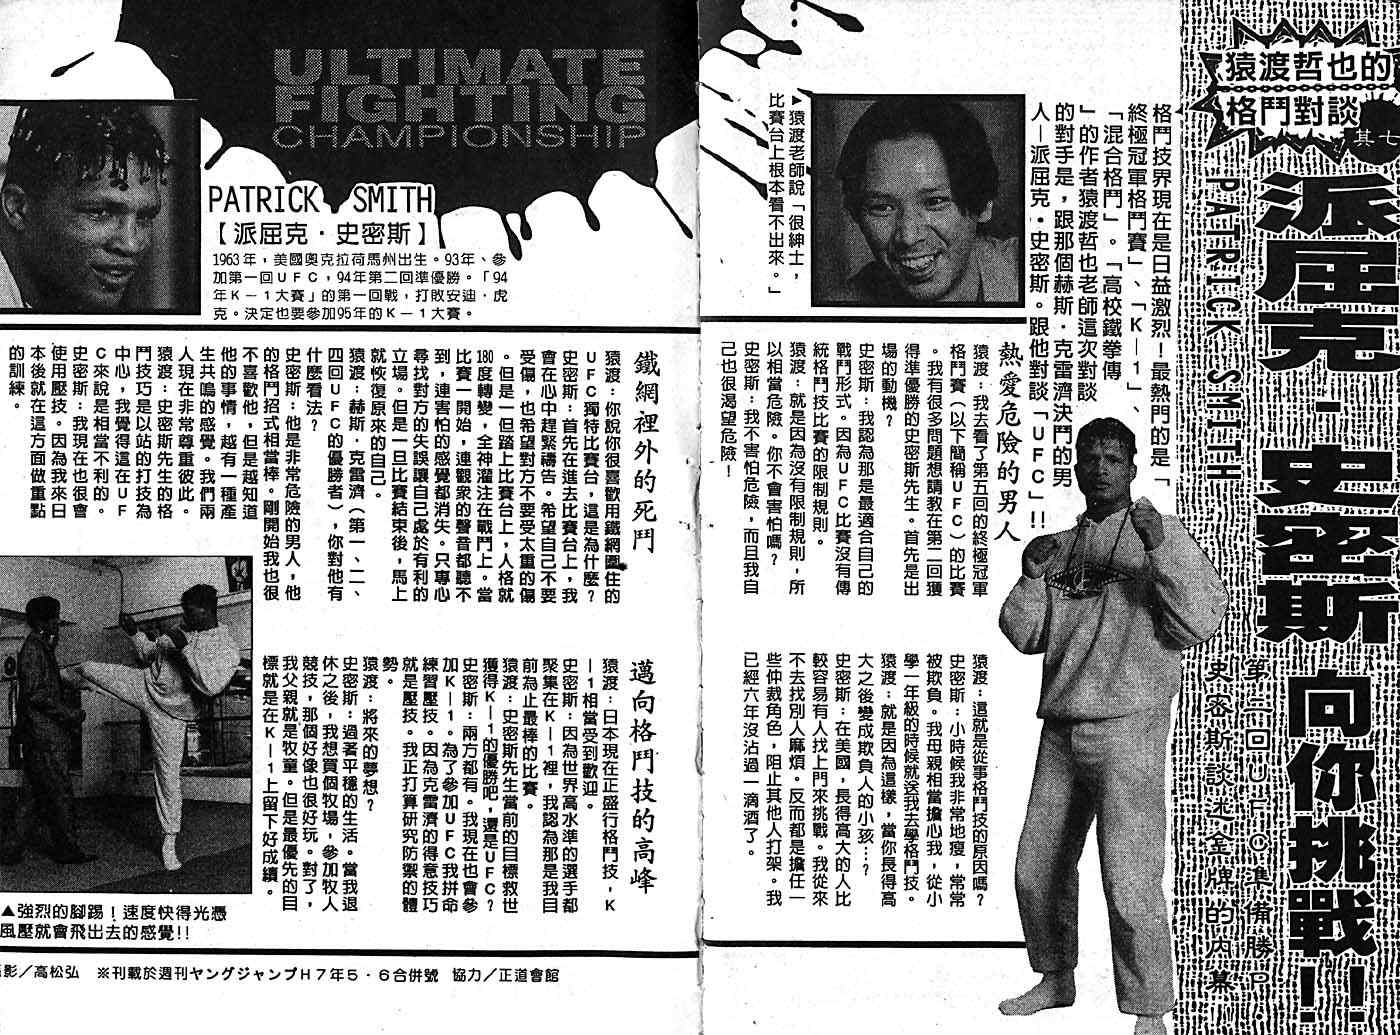 猿渡哲也的
格鬥對談
其七
派屈克·史密斯向你挑戰!!
PATRICK·SMITH
第二回UFC準備勝P.
史密斯談迄金牌的內幕
格鬥技界現在是日益激烈!最熱門的是「
終極冠軍格鬥賽」、「K—1」、
「混合格鬥」。「高校鐵拳傳
」的作者猿渡哲也老師這次對談
的對手是，跟那個赫斯·克雷濟決鬥的男
人—派屈克·史密斯。跟他對談「UFC」!!
▶猿渡老師說「很紳士，
比賽台上根本看不出來。」
熱愛危險的男人
猿渡：我去看了第五回的終極冠軍
格鬥賽（以下簡稱UFC）的比賽
。我有很多問題想請教在第二回獲
得準優勝的史密斯先生。首先是出
場的動機?
史密斯：我認為那是最適合自己的
戰鬥形式。因為UFC比賽沒有傳
統格鬥技比賽的限制規則。
猿渡：就是因為沒有限制規則，所
以相當危險。你不會害怕嗎?
史密斯：我不害怕危險，而且我自
己也很渴望危險!
猿渡：這就是從事格鬥技的原因嗎?
史密斯：小時候我非常地瘦，常常
被欺負。我母親相當擔心我，從小
學一年級的時候就送我去學格鬥技。
猿渡：就是因為這樣，當你長得高
大之後變成欺負人的小孩…?
史密斯：在美國，長得高大的人比
較容易有人找上門來挑戰。我從來
不去找別人麻煩。反而都是擔任一
些仲裁角色，阻止其他人打架。我
已經六年沒沾過一滴酒了。
ULTIMATE
FIGHTING
CHAMPIONSHIP
PATRICK SMITH
【派屈克·史密斯】
1963年，美國奧克拉荷馬州出生。93年、參
加第一回UFC，94年第二回準優勝。「94
年K—1大賽」的第一回戰，打敗安迪·虎
克。決定也要參加95年的K—1大賽。
鐵網裡外的死鬥
猿渡：你說你很喜歡用鐵網圍住的
UFC獨特比賽台，這是為什麼?
史密斯：首先在進去比賽台上，我
會在心中趕緊禱告。希望自己不要
受傷，也希望對方不要受太重的傷
。但是一但踏上比賽台上，人格就
180度轉變，全神灌注在戰鬥上。當
比賽一開始，連觀眾的聲音都聽不
到，連害怕的感覺都消失。只專心
尋找對方的失誤讓自己處於有利的
立場。但是一旦比賽結束後，馬上
就恢復原來的自己。
猿渡：赫斯·克雷濟（第一、二、
四回UFC的優勝者），你對他有
什麼看法?
史密斯：他是非常危險的男人，他
的格鬥招式相當棒。剛開始我也很
不喜歡他，但是越知道
他的事情，越有一種產
生共鳴的感覺。我們兩
人現在非常尊重彼此。
猿渡：史密斯先生的格
鬥技巧是以站的打技為
中心，我覺得這在UF
C來說是相當不利的。
史密斯：我現在也很會
使用壓技。因為我來日
本後就在這方面做重點
的訓練。
邁向格鬥技的高峰
猿渡：日本現在正盛行格鬥技，K
—1相當受到歡迎。
史密斯：因為世界高水準的選手都
聚集在K—1裡，我認為那是我目
前為止最棒的比賽。
猿渡：史密斯先生當前的目標救世
獲得K—1的優勝吧，還是UFC?
史密斯：兩方都有。我現在也會參
加K—1。為了參加UFC我拼命
練習壓技。因為克雷濟的得意技巧
就是壓技。我正打算研究防禦的體
勢。
猿渡：將來的夢想?
史密斯：過著平穩的生活。當我退
休之後，我想買個牧場，參加牧人
競技，那個好像也很好玩。對了，
我父親就是牧童。但是最優先的目
標就是在K—1上留下好成績。
▲強烈的腳踢！速度快得光憑
風壓就會飛出去的感覺!!
影／高松弘 ※刊載於週刊ヤングジャンプH7年5·6合併號 協力／正道會館